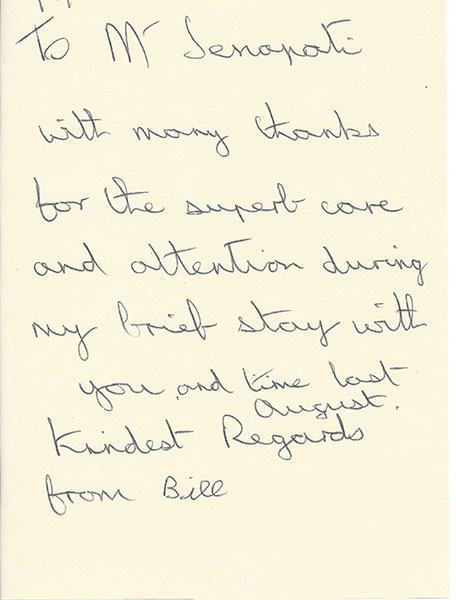 To Mr Senapati
with many thanks
for the superb care
and attention during
my brief stay with
you and time last
August.
Kindest Regards
from Bill